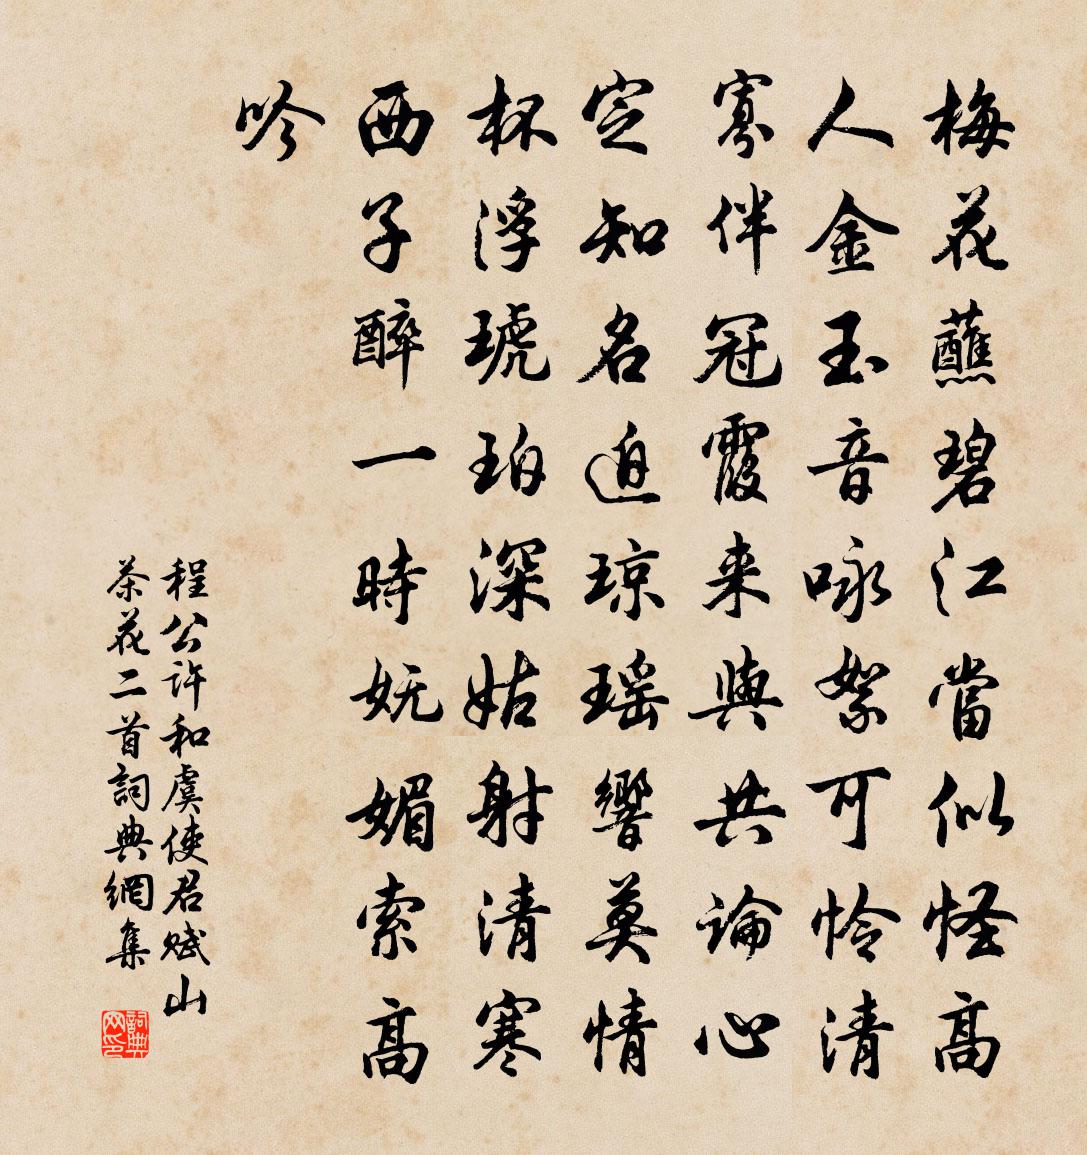 梅花蘸碧江當似怪高
人金玉音咏絮可怜清
寡伴冠霞来與共論心
定知名迫琼瑶響莫情
杯浮琥珀深姑射清寒
西子醉一時妩媚索高
吟
程公許和虞使君赋山
茶花二首詞典網集
詞典网印